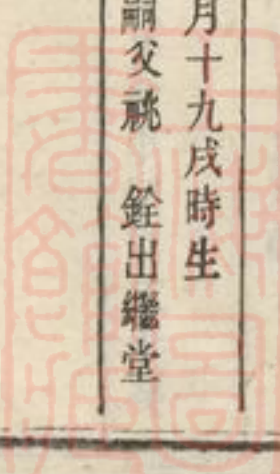 月十九戌時生
嗣父祧　銓出繼堂